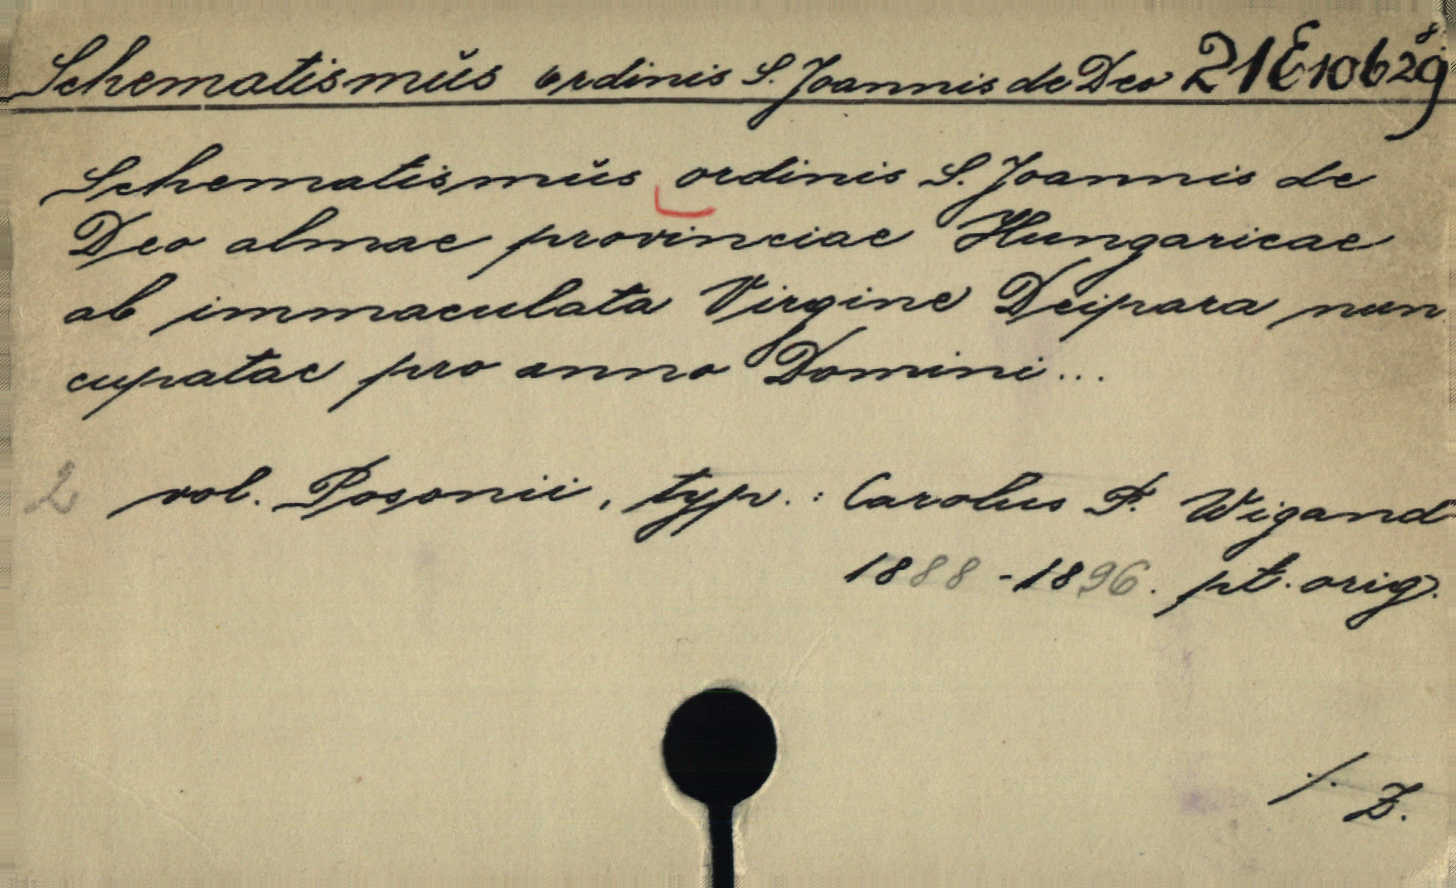 Schematismŭs ordinis S. Joannis de Deo 21 E 10 b 29 8.
Schematismŭs ordinis S. Joannis de
Deo almae provinciae Hungaricae
ab immaculata Virgine Deipara nun
cupatae pro anno Domini...
2 vol. Posonii, typ.: Carolus F. Wigand
1888-1896. pt. orig.
/. Z.